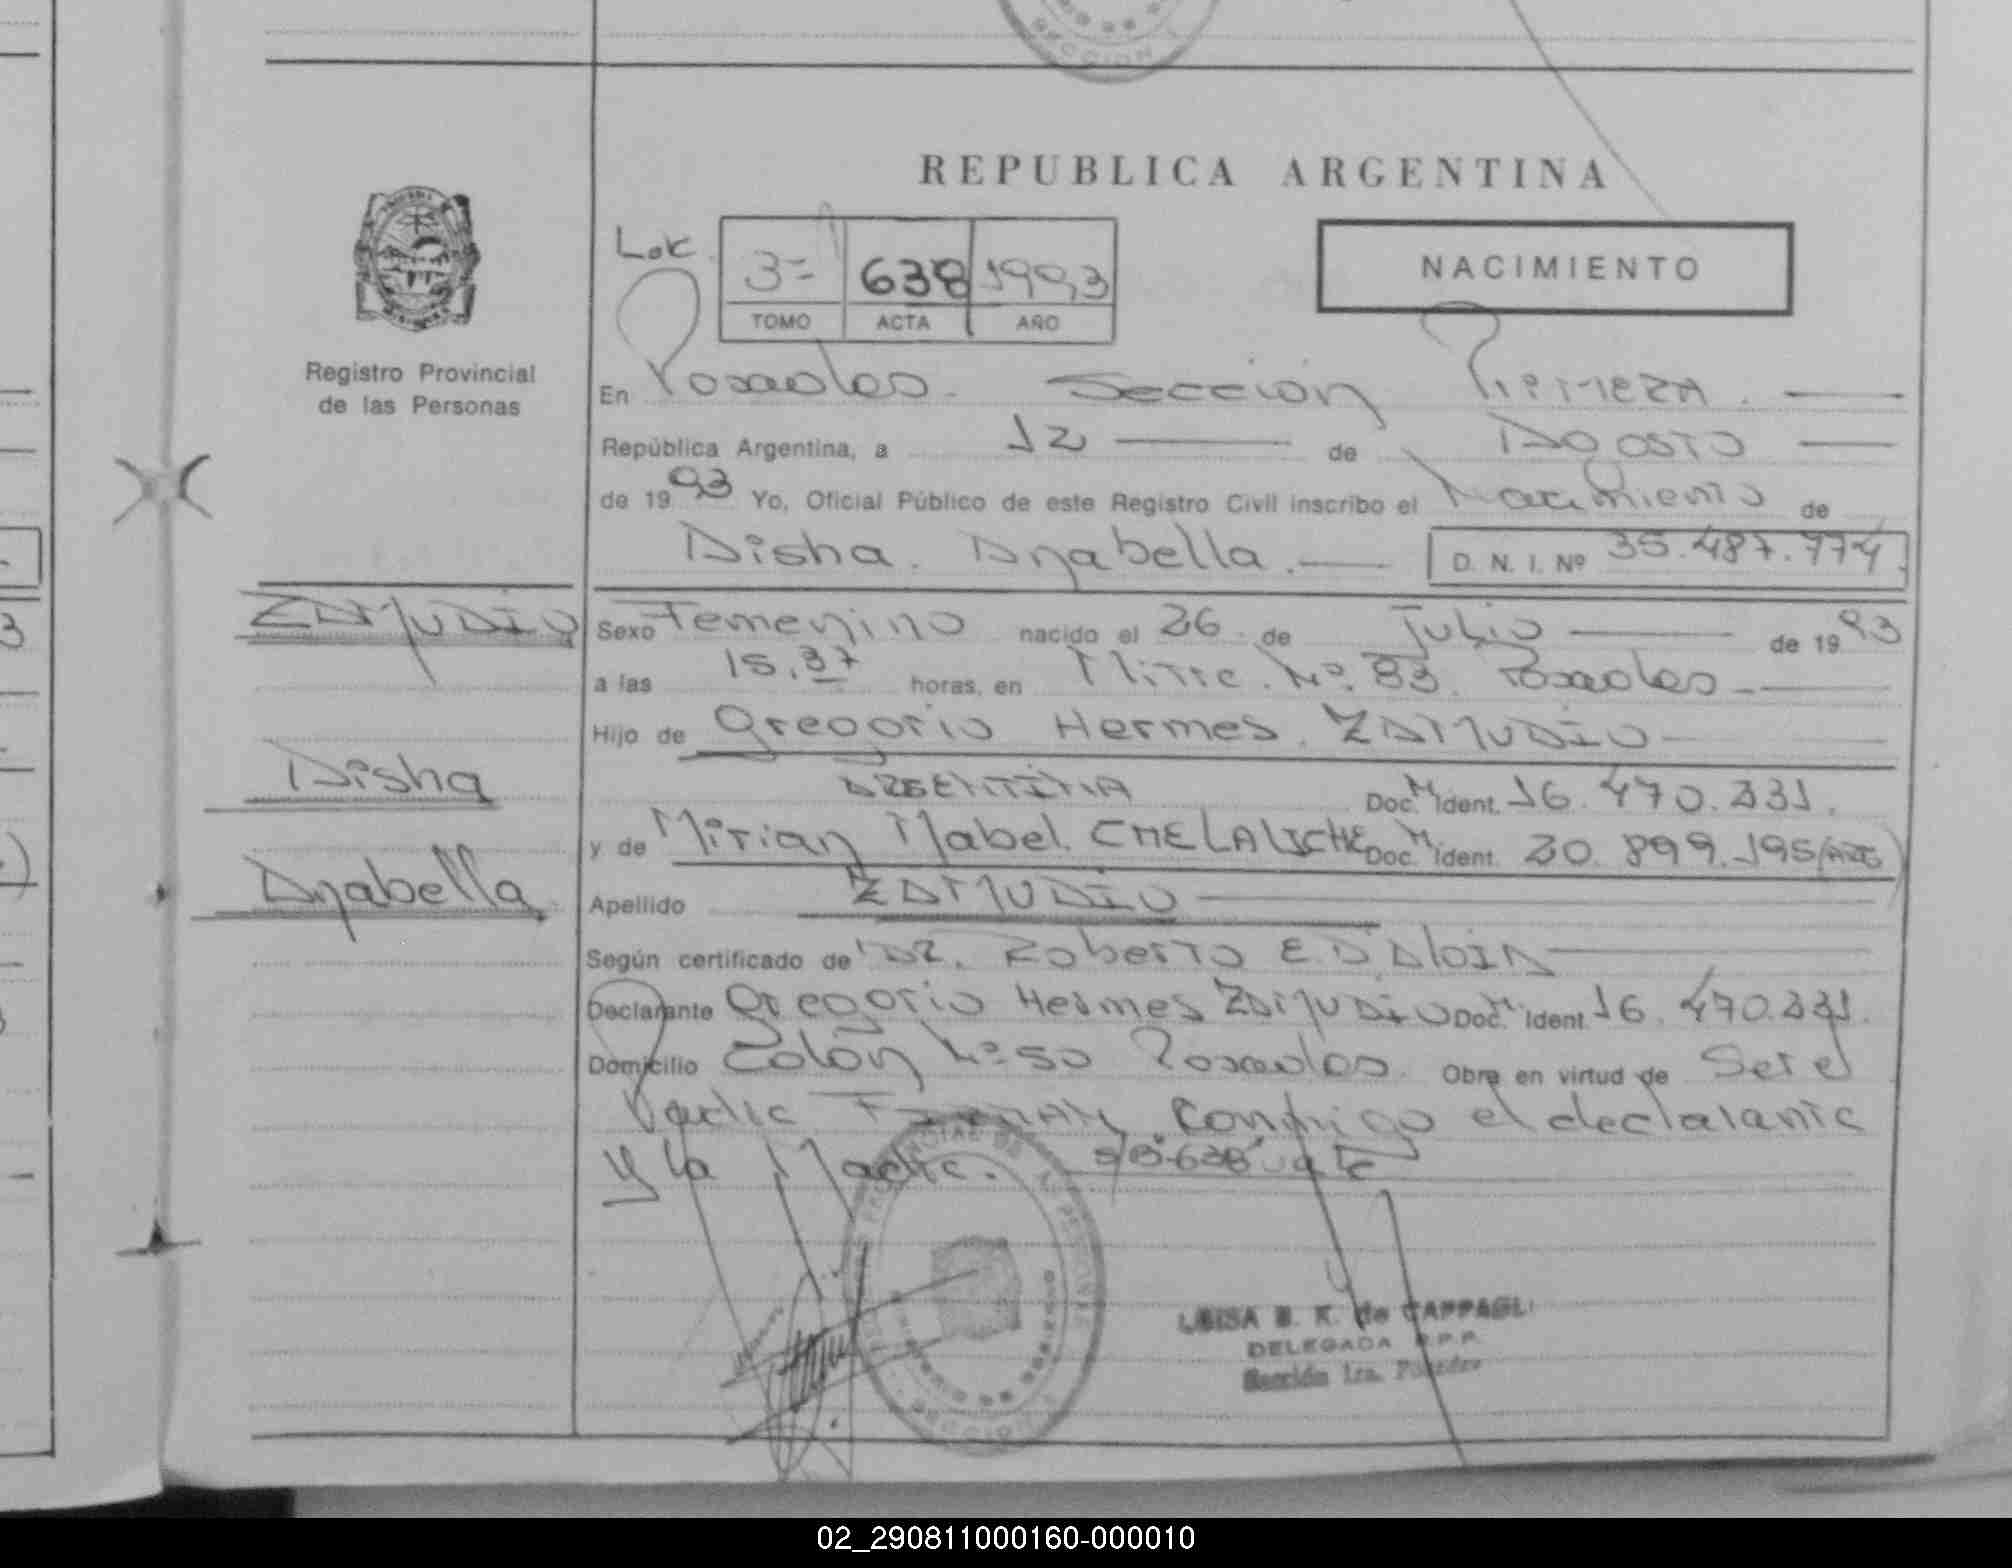 SECCION 1
REPUBLICA ARGENTINA
Registro Provincial
de las Personas
NACIMIENTO
3= 638 1993
TOMO ACTA AÑO
En Posadas. Sección Primera.
República Argentina, a 12 de Agosto
de 1993 Yo, Oficial Público de este Registro Civil inscribo el Nacimiento de
Aisha. Anabella. D. N. I. Nº 35.487.774.
ZAMUDIO
Aisha
Anabella
Sexo Femenino nacido el 26 de Julio de 1993
a las 15,37 horas, en Mitre. Nº. 83. Posadas
Hijo de Gregorio Hermes. ZAMUDIO
ARGENTINA Doc. M Ident. 16.470.331.
y de Mirian Mabel. Doc. M Ident. 20.899.195
Apellido ZAMUDIO
Según certificado de DR. Roberto E.
Declarante Gregorio Hermes ZAMUDIO Doc. M Ident. 16.470.331.
Domicilio Colón Nº 50 Posadas. Obra en virtud de Ser el
Padre FIRMAN Conmigo el declarante
y la Madre.
SECCION 1
LUISA B. K. de CAPPAGLI
DELEGADA R.P.P.
Sección 1ra. Posadas
02_290811000160-000010